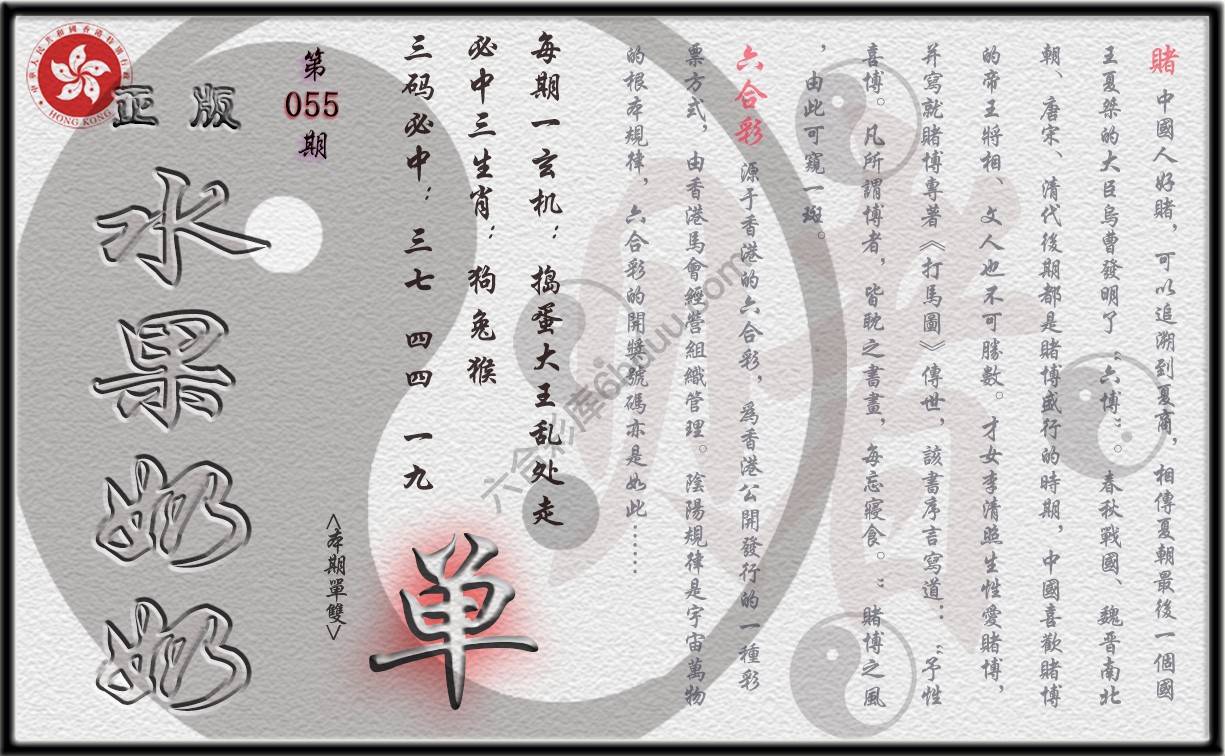 賭 中國人好賭，可以追溯到夏商，相傳夏朝最後一個國
王夏桀的大臣烏曹發明了“六博”。春秋戰國、魏晋南北
朝、唐宋、清代後期都是賭博盛行的時期，中國喜歡賭博
的帝王將相、文人也不可勝數。才女李清照生性愛賭博，
并寫就賭博專著《打馬圖》傳世，該書序言寫道：“予性
喜博。凡所謂博者，皆耽之書畫，每忘寢食。”賭博之風
，由此可窺一斑。
六合彩 源于香港的六合彩，爲香港公開發行的一種彩
票方式，由香港馬會經營組織管理。陰陽規律是宇宙萬物
的根本規律，六合彩的開獎號碼亦是如此……
每期一玄机：搗蛋大王乱处走
必中三生肖：狗兔猴
三码必中：三七 四四 一九
单
<本期單雙>
第
055
期
正版
水果奶奶
中華人民共和國香港特別行政區
HONG KONG
六合彩库6hduu.com